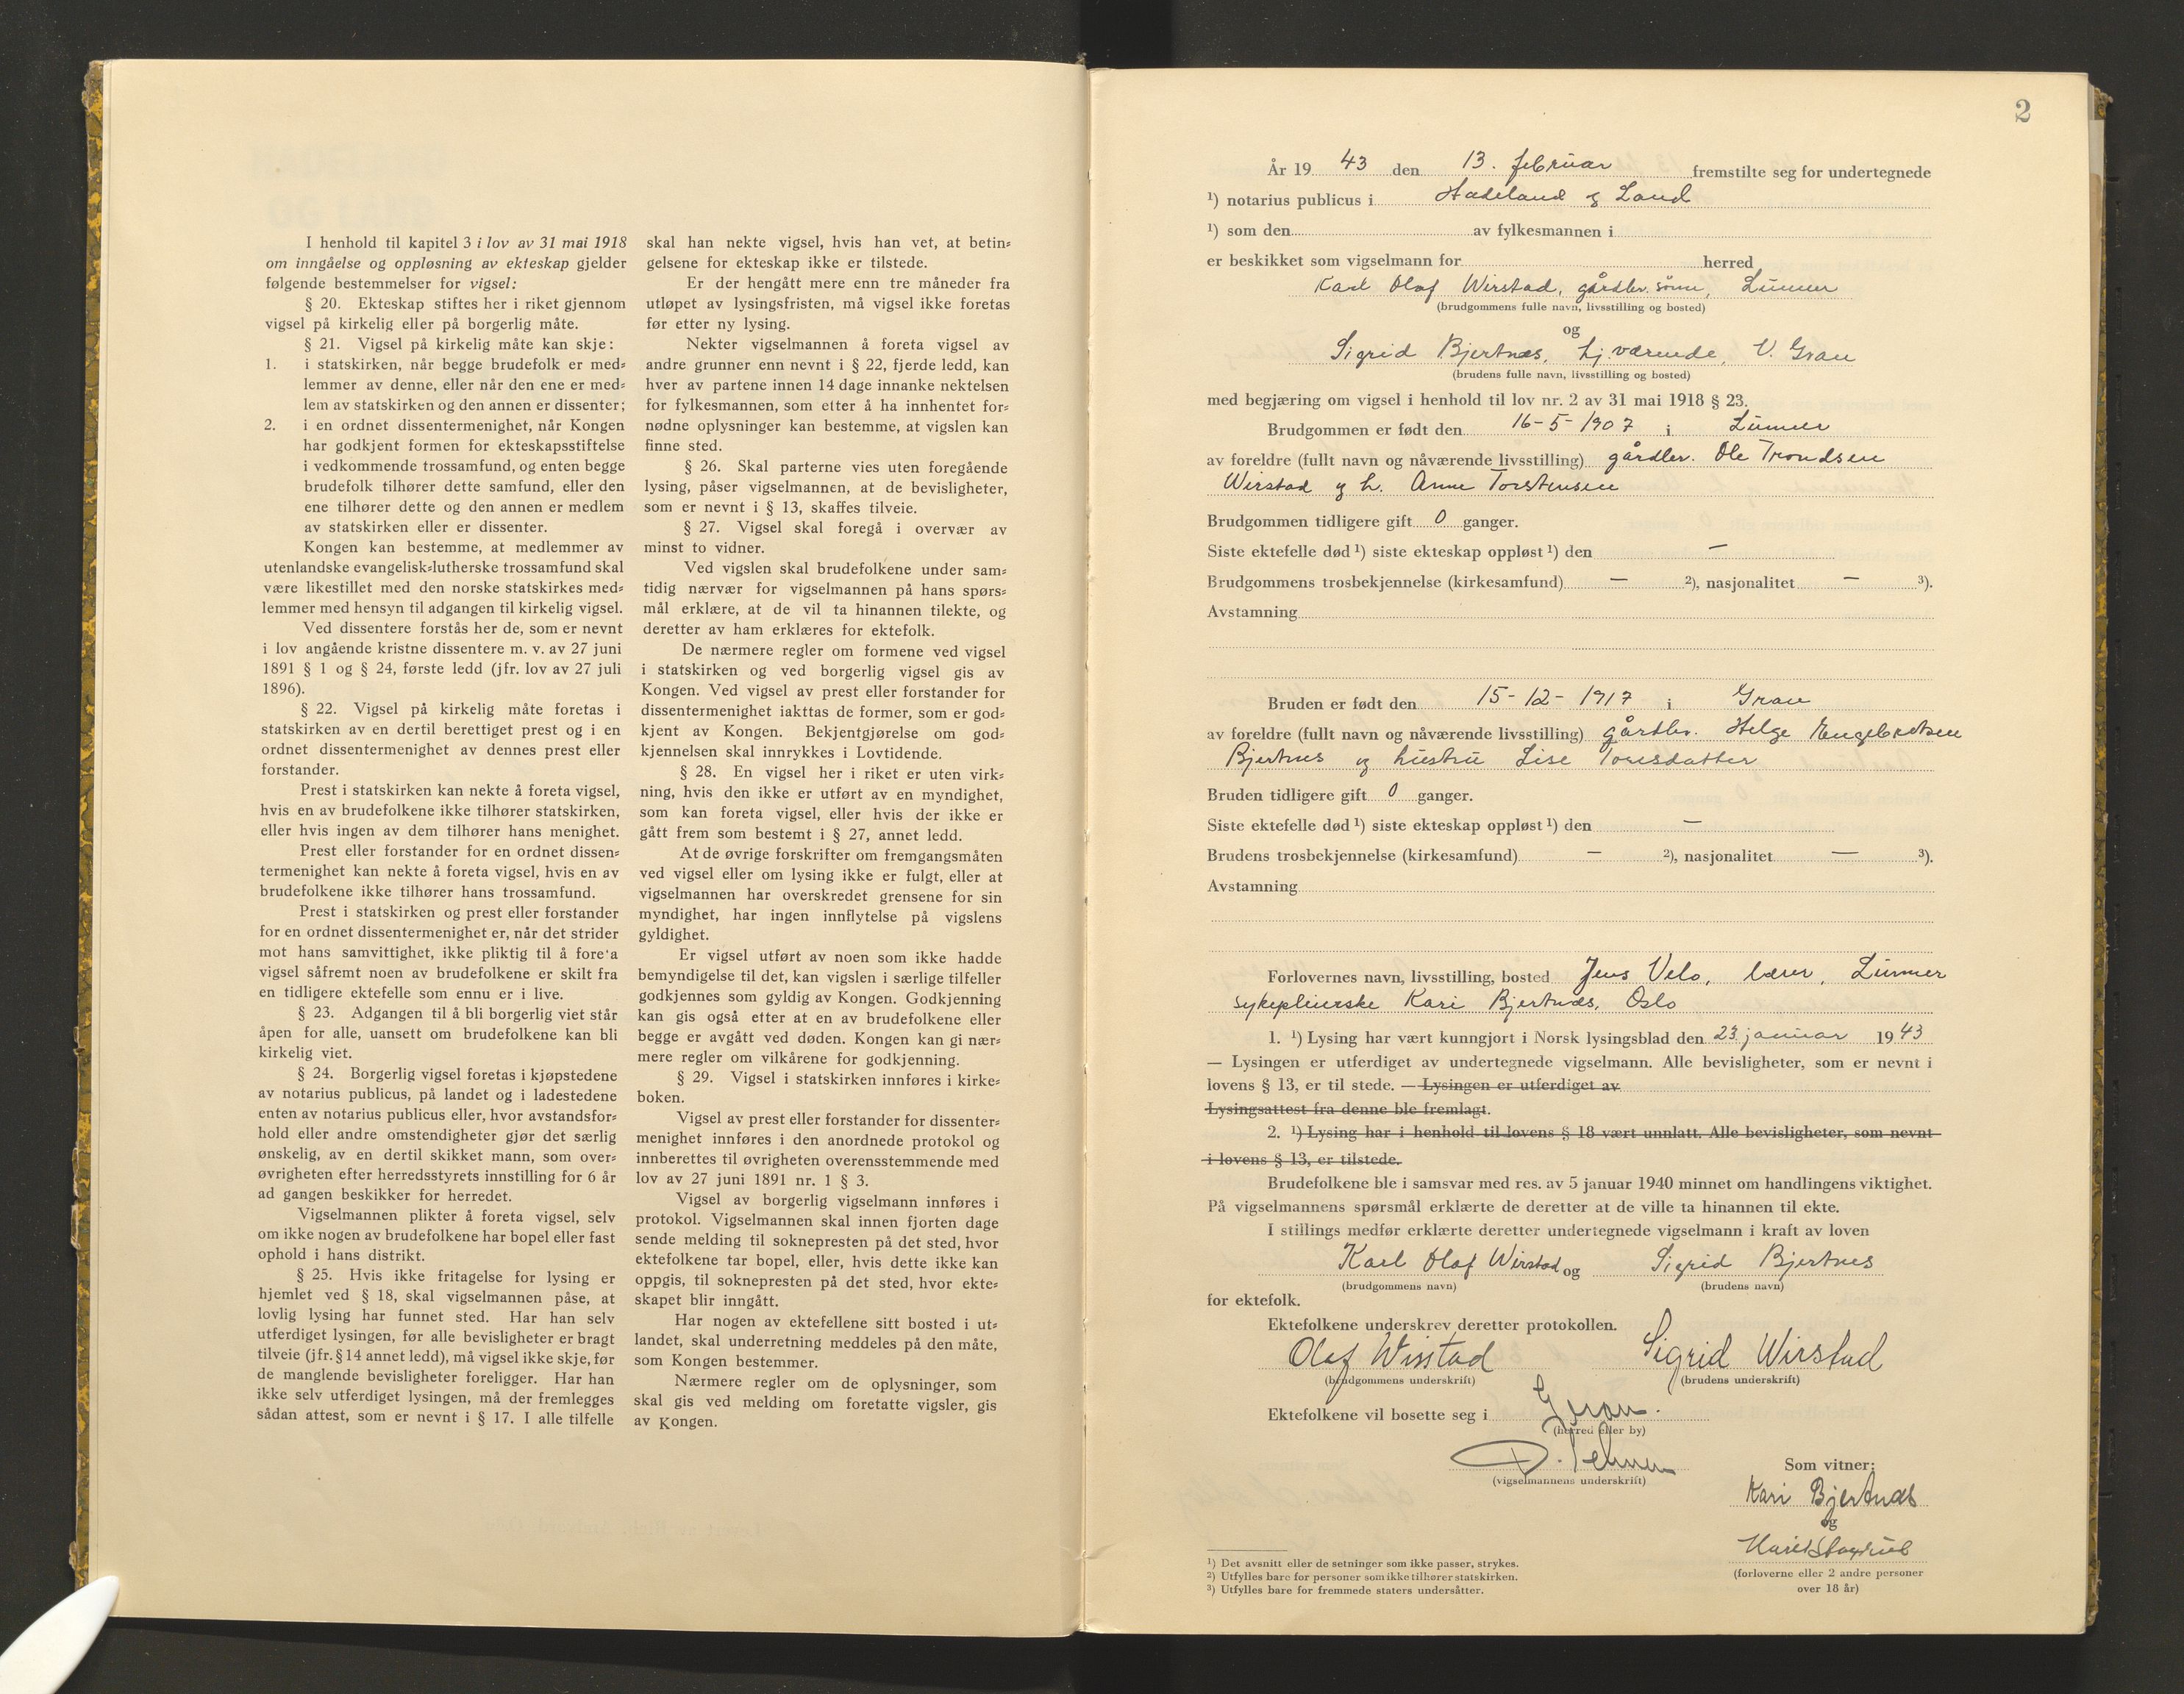 I henhold til kapitel 3 i lov av 31 mai 1918
om inngåelse og oppløsning av ekteskap gjelder
følgende bestemmelser for vigsel:
§ 20. Ekteskap stiftes her i riket gjennom
vigsel på kirkelig eller på borgerlig måte.
§ 21. Vigsel på kirkelig måte kan skje:
1. i statskirken, når begge brudefolk er med-
lemmer av denne, eller når den ene er med-
lem av statskirken og den annen er dissenter;
2. i en ordnet dissentermenighet, når Kongen
har godkjent formen for ekteskapsstiftelse
i vedkommende trossamfund, og enten begge
brudefolk tilhører dette samfund, eller den
ene tilhører dette og den annen er medlem
av statskirken eller er dissenter.
Kongen kan bestemme, at medlemmer av
utenlandske evangelisk-lutherske trossamfund skal
være likestillet med den norske statskirkes med-
lemmer med hensyn til adgangen til kirkelig vigsel.
Ved dissentere forstås her de, som er nevnt
i lov angående kristne dissentere m. v. av 27 juni
1891 § 1 og § 24, første ledd (jfr. lov av 27 juli
1896).
§ 22. Vigsel på kirkelig måte foretas i
statskirken av en dertil berettiget prest og i en
ordnet dissentermenighet av dennes prest eller
forstander.
Prest i statskirken kan nekte å foreta vigsel,
hvis en av brudefolkene ikke tilhører statskirken,
eller hvis ingen av dem tilhører hans menighet.
Prest eller forstander for en ordnet dissen-
termenighet kan nekte å foreta vigsel, hvis en av
brudefolkene ikke tilhører hans trossamfund.
Prest i statskirken og prest eller forstander
for en ordnet dissentermenighet er, når det strider
mot hans samvittighet, ikke pliktig til å fore'a
vigsel såfremt noen av brudefolkene er skilt fra
en tidligere ektefelle som ennu er i live.
§ 23. Adgangen til å bli borgerlig viet står
åpen for alle, uansett om brudefolkene kan bli
kirkelig viet.
§ 24. Borgerlig vigsel foretas i kjøpstedene
av notarius publicus, på landet og i ladestedene
enten av notarius publicus eller, hvor avstandsfor-
hold eller andre omstendigheter gjør det særlig
ønskelig, av en dertil skikket mann, som over-
øvrigheten efter herredsstyrets innstilling for 6 år
ad gangen beskikker for herredet.
Vigselmannen plikter å foreta vigsel, selv
om ikke nogen av brudefolkene har bopel eller fast
ophold i hans distrikt.
§ 25. Hvis ikke fritagelse for lysing er
hjemlet ved § 18, skal vigselmannen påse, at
lovlig lysing har funnet sted. Har han selv
utferdiget lysingen, før alle bevisligheter er bragt
tilveie (jfr. § 14 annet ledd), må vigsel ikke skje, før
de manglende bevisligheter foreligger. Har han
ikke selv utferdiget lysingen, må der fremlegges
sådan attest, som er nevnt i § 17. I alle tilfelle
skal han nekte vigsel, hvis han vet, at betin-
gelsene for ekteskap ikke er tilstede.
Er der hengått mere enn tre måneder fra
utløpet av lysingsfristen, må vigsel ikke foretas
før etter ny lysing.
Nekter vigselmannen å foreta vigsel av
andre grunner enn nevnt i § 22, fjerde ledd, kan
hver av partene innen 14 dage innanke nektelsen
for fylkesmannen, som etter å ha innhentet for-
nødne oplysninger kan bestemme, at vigslen kan
finne sted.
§ 26. Skal parterne vies uten foregående
lysing, påser vigselmannen, at de bevisligheter,
som er nevnt i § 13, skaffes tilveie.
§ 27. Vigsel skal foregå i overvær av
minst to vidner.
Ved vigslen skal brudefolkene under sam-
tidig nærvær for vigselmannen på hans spørs-
mål erklære, at de vil ta hinannen tilekte, og
deretter av ham erklæres for ektefolk.
De nærmere regler om formene ved vigsel
i statskirken og ved borgerlig vigsel gis av
Kongen. Ved vigsel av prest eller forstander for
dissentermenighet iakttas de former, som er god-
kjent av Kongen. Bekjentgjørelse om god-
kjennelsen skal innrykkes i Lovtidende.
§ 28. En vigsel her i riket er uten virk-
ning, hvis den ikke er utført av en myndighet,
som kan foreta vigsel, eller hvis der ikke er
gått frem som bestemt i § 27, annet ledd.
At de øvrige forskrifter om fremgangsmåten
ved vigsel eller om lysing ikke er fulgt, eller at
vigselmannen har overskredet grensene for sin
myndighet, har ingen innflytelse på vigslens
gyldighet.
Er vigsel utført av noen som ikke hadde
bemyndigelse til det, kan vigslen i særlige tilfeller
godkjennes som gyldig av Kongen. Godkjenning
kan gis også etter at en av brudefolkene eller
begge er avgått ved døden. Kongen kan gi nær-
mere regler om vilkårene for godkjenning.
§ 29. Vigsel i statskirken innføres i kirke-
boken.
Vigsel av prest eller forstander for dissenter-
menighet innføres i den anordnede protokol og
innberettes til øvrigheten overensstemmende med
lov av 27 juni 1891 nr. 1 § 3.
Vigsel av borgerlig vigselmann innføres i
protokol. Vigselmannen skal innen fjorten dage
sende melding til soknepresten på det sted, hvor
ektefolkene tar bopel, eller, hvis dette ikke kan
oppgis, til soknepresten på det sted, hvor ekte-
skapet blir inngått.
Har nogen av ektefellene sitt bosted i ut-
landet, skal underretning meddeles på den måte,
som Kongen bestemmer.
Nærmere regler om de oplysninger, som
skal gis ved melding om foretatte vigsler, gis
av Kongen.
2
År 19 43 den 13. februar fremstilte seg for undertegnede
1) notarius publicus i Hadeland og Land
1) som den av fylkesmannen i
er beskikket som vigselmann for herred
Karl Olaf Wirstad, gårdbr. sönn, Lunner
(brudgommens fulle navn, livsstilling og bosted)
og
Sigrid Bjertnæs, hj.værende, V. Gran
(brudens fulle navn, livsstilling og bosted)
med begjæring om vigsel i henhold til lov nr. 2 av 31 mai 1918 § 23.
Brudgommen er født den 16-5-1907 i Lunner
av foreldre (fullt navn og nåværende livsstilling) gårdbr. Ole Trondsen
Wirstad og h. Anne Torstensen
Brudgommen tidligere gift 0 ganger.
Siste ektefelle død 1) siste ekteskap oppløst 1) den —
Brudgommens trosbekjennelse (kirkesamfund) — 2), nasjonalitet — 3).
Avstamning
Bruden er født den 15-12-1917 i Gran
av foreldre (fullt navn og nåværende livsstilling) gårdbr. Helge Engebretsen
Bjertnes og hustru Lise Toresdatter
Bruden tidligere gift 0 ganger.
Siste ektefelle død 1) siste ekteskap oppløst 1) den —
Brudens trosbekjennelse (kirkesamfund) — 2), nasjonalitet — 3).
Avstamning
Forlovernes navn, livsstilling, bosted Jens Velo, lærer, Lunner
sykepleierske Kari Bjertnæs, Oslo
1. 1) Lysing har vært kunngjort i Norsk lysingsblad den 23. januar 1943
— Lysingen er utferdiget av undertegnede vigselmann. Alle bevisligheter, som er nevnt i
lovens § 13, er til stede. — Lysingen er utferdiget av
Lysingsattest fra denne ble fremlagt.
2. 1) Lysing har i henhold til lovens § 18 vært unnlatt. Alle bevisligheter, som nevnt
i lovens § 13, er tilstede.
Brudefolkene ble i samsvar med res. av 5 januar 1940 minnet om handlingens viktighet.
På vigselmannens spørsmål erklærte de deretter at de ville ta hinannen til ekte.
I stillings medfør erklærte deretter undertegnede vigselmann i kraft av loven
Karl Olaf Wirstad og Sigrid Bjertnes
(brudgommens navn) (brudens navn)
for ektefolk.
Ektefolkene underskrev deretter protokollen.
Olaf Wirstad Sigrid Wirstad
(brudgommens underskrift) (brudens underskrift)
Ektefolkene vil bosette seg i Gran.
(herred eller by)
(vigselmannens underskrift)
Som vitner:
Kari Bjertnæs
og
(forloverne eller 2 andre personer
over 18 år)
1) Det avsnitt eller de setninger som ikke passer, strykes.
2) Utfylles bare for personer som ikke tilhører statskirken.
3) Utfylles bare for fremmede staters undersåtter.